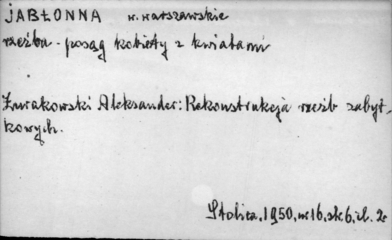 JABŁONNA w. warszawskie
rzeźba - posąg kobiety z kwiatami
Żurakowski Aleksander: Rekonstrukcja rzeźb zabyt-
kowych.
Stolica, 1950, nr 16, str. 6, il. 2